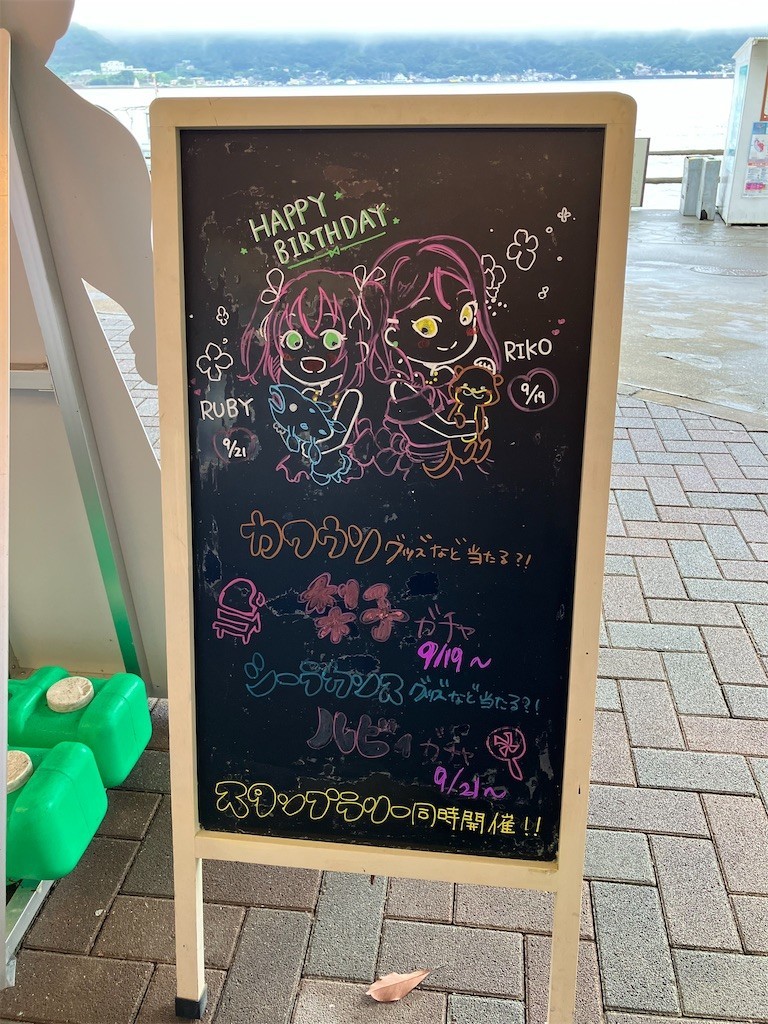 HAPPY
BIRTHDAY
RIKO
9/19
RUBY
9/21
カワウソ グッズなど当たる?!
梨子 ガチャ
9/19~
シーラカンス グッズなど当たる?!
ルビィ ガチャ
9/21~
スタンプラリー同時開催!!